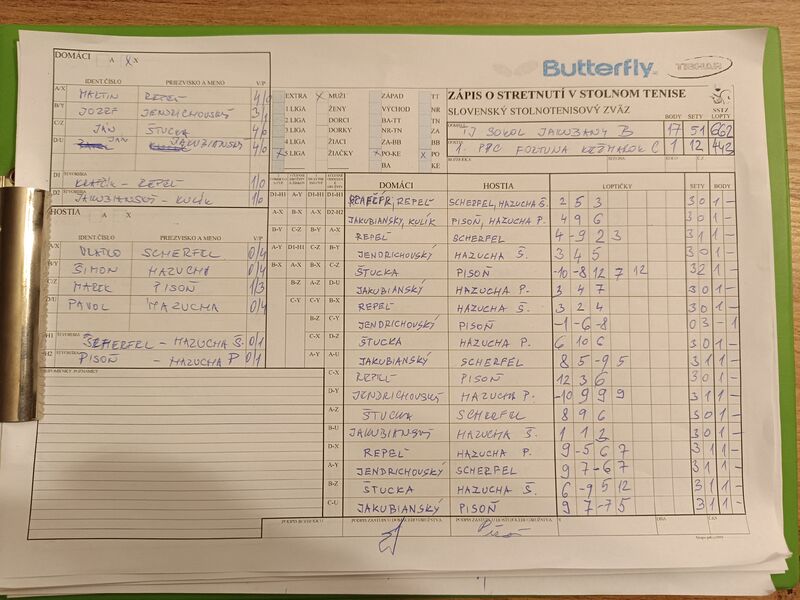 DOMÁCI A X
IDENT ČÍSLO PRIEZVISKO A MENO V/P
A/X MARTIN REPEL 4/0
B/Y JOZEF JENDRICHOVSKÝ 3/1
C/Z JÁN ŠTUCKA 4/0
D/U JÁN JAKUBIANSKÝ 4/0
D1 KLAČIK - REPEL 1/0
D2 JAKUBIANSKÝ - KULÍK 1/0
HOSTIA A X
IDENT ČÍSLO PRIEZVISKO A MENO V/P
A/X VLADO SCHERFEL 0/4
B/Y ŠIMON HAZUCHA 0/4
C/Z MAREK PISOŇ 1/3
PAVOL HAZUCHA 0/4
H1 SCHERFEL - HAZUCHA Š. 0/1
H2 PISOŇ - HAZUCHA P 0/1
PRIPOMIENKY, POZNÁMKY
Butterfly
EXTRA MUŽI ZÁPAD TT
1.LIGA ŽENY VÝCHOD NR
2.LIGA DORCI BA-TT TN
3.LIGA DORKY NR-TN ZA
4.LIGA ŽIACI ZA-BB BB
5.LIGA ŽIAČKY PO-KE PO
BA KE
ZÁPIS O STRETNUTÍ V STOLNOM TENISE
SLOVENSKÝ STOLNOTENISOVÝ ZVÄZ
BODY SETY LOPTY
TJ SOKOL JAKUBANY B 17 51 662
1. PPC FORTUNA KEŽMAROK C 1 12 443
DOMÁCI HOSTIA LOPTIČKY SETY BODY
REPEL SCHERFEL, HAZUCHA Š. 2 5 3 3 0 1 -
JAKUBIANSKY, KULÍK PISOŇ, HAZUCHA P. 4 9 6 3 0 1 -
REPEL SCHERFEL 4 -9 2 3 3 1 1 -
JENDRICHOVSKÝ HAZUCHA Š. 3 4 5 3 0 1 -
ŠTUCKA PISOŇ -10 -8 12 7 12 3 2 1 -
JAKUBIANSKÝ HAZUCHA P. 3 4 7 3 0 1 -
REPEL HAZUCHA Š. 3 2 4 3 0 1 -
JENDRICHOVSKÝ PISOŇ -1 -6 -8 0 3 - 1
ŠTUCKA HAZUCHA P. 6 10 6 3 0 1 -
JAKUBIANSKÝ SCHERFEL 8 5 -9 5 3 1 1 -
REPEL PISOŇ 12 3 6 3 0 1 -
JENDRICHOVSKÝ HAZUCHA P. -10 9 9 9 3 1 1 -
ŠTUCKA SCHERFEL 8 9 6 3 0 1 -
JAKUBIANSKÝ HAZUCHA Š. 1 1 2 3 0 1 -
REPEL HAZUCHA P. 9 -5 6 7 3 1 1 -
JENDRICHOVSKÝ SCHERFEL 9 7 -6 7 3 1 1 -
ŠTUCKA HAZUCHA Š. 6 -9 5 12 3 1 1 -
JAKUBIANSKÝ PISOŇ 9 7 -7 5 3 1 1 -
V DŇA ČAS